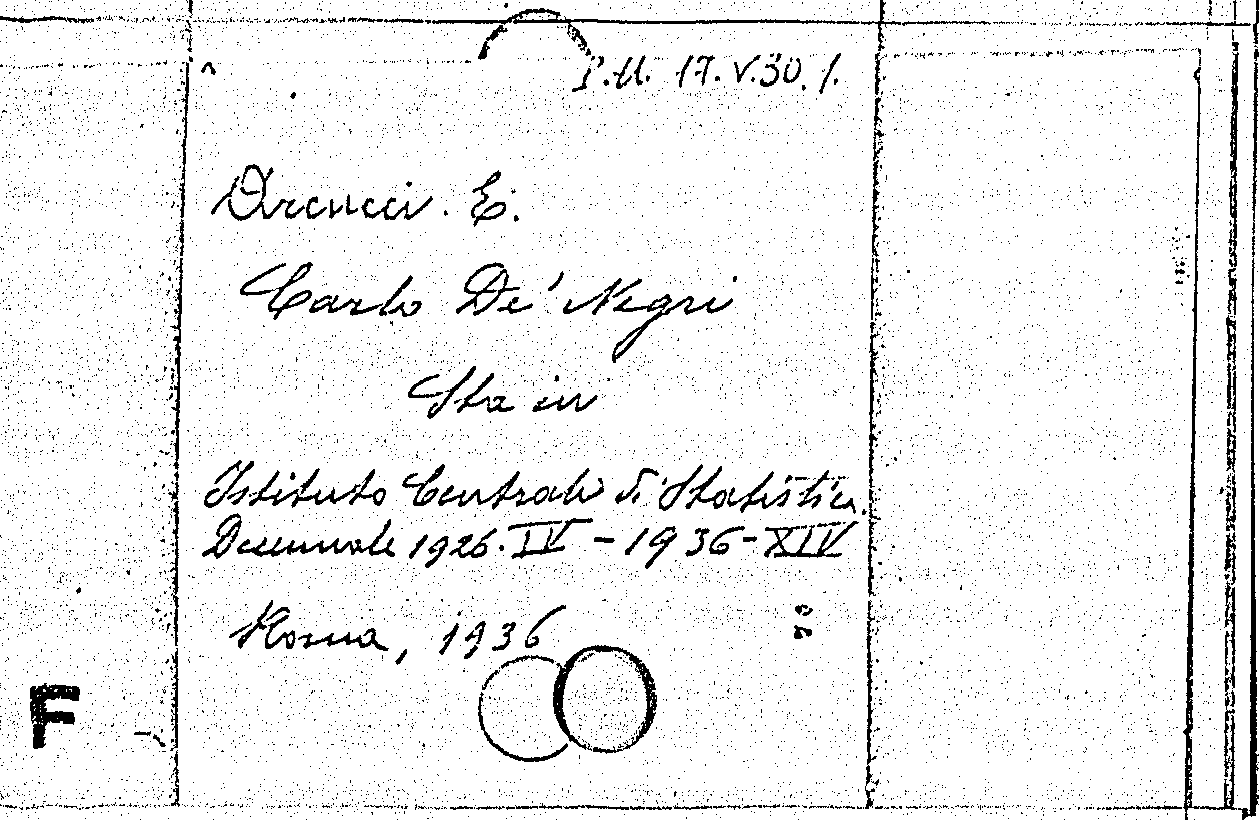 P.M. 17.V.30.1.
E.
Carlo De' Negri
Sta in
Istituto Centrale di Statistica.
Decennale 1926-IV - 1936-XIV
Roma, 1936
F